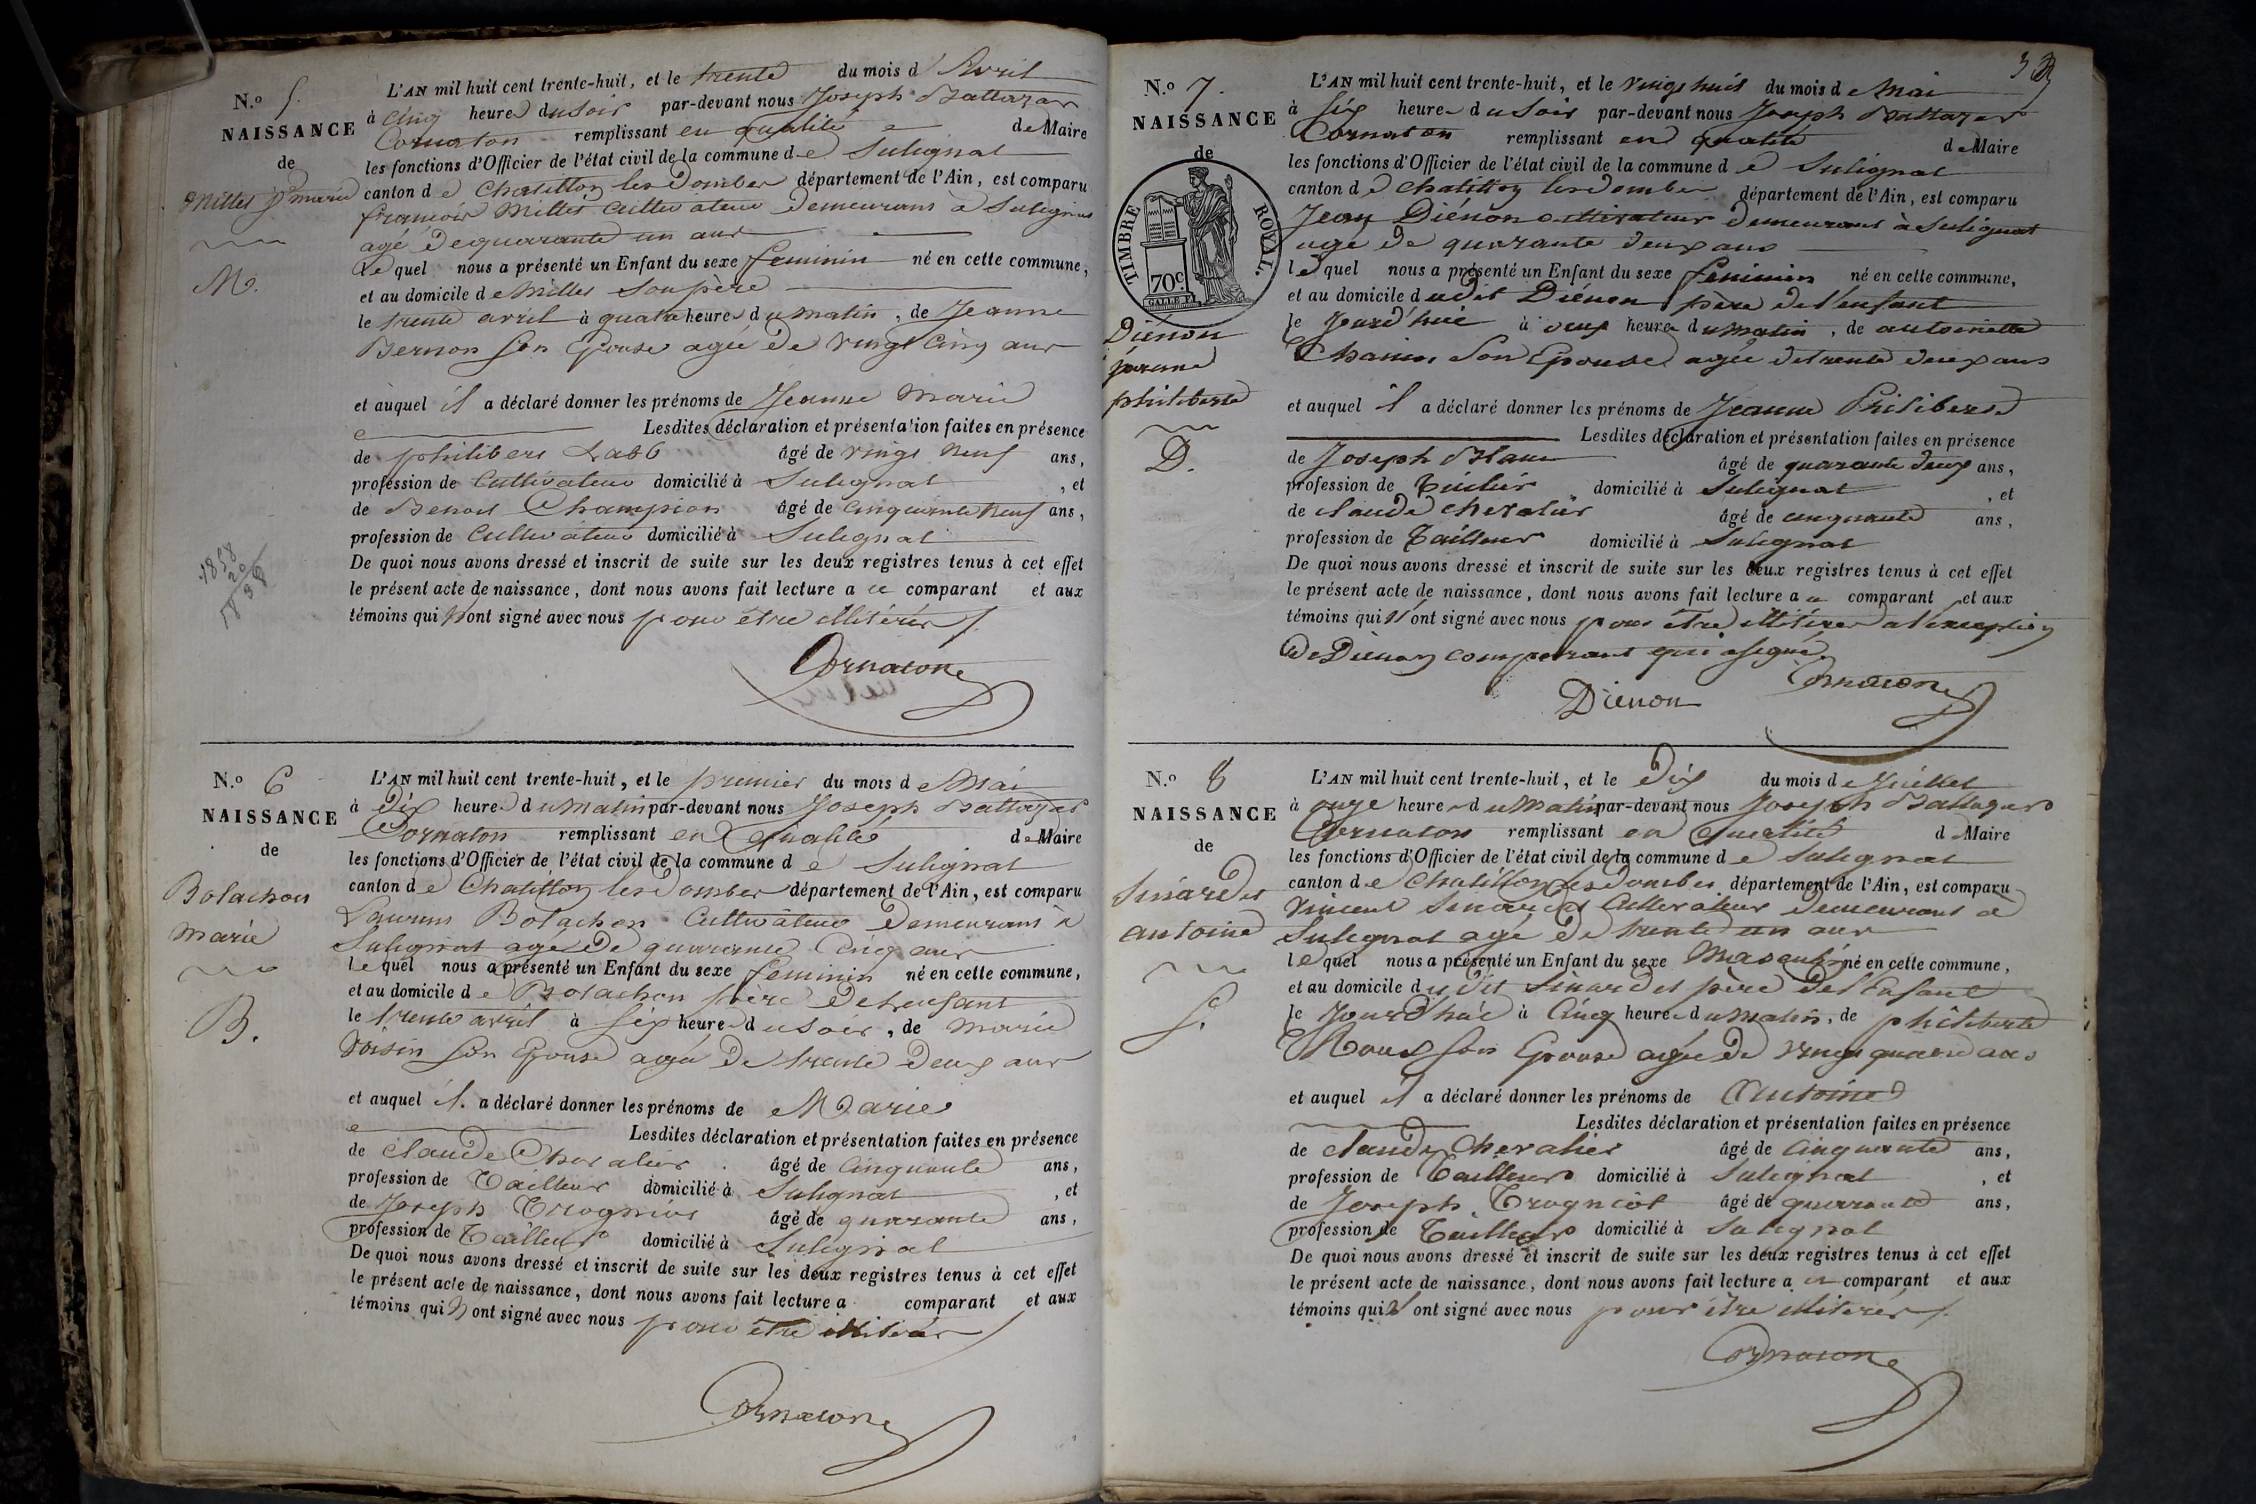 N.o 5.
NAISSANCE
de
Millet Jne marie
M.
1858
20
1838
L'AN mil huit cent trente-huit, et le trente du mois d'Avril
à cinq heures du soir par-devant nous Joseph Baltazar
Cornaton remplissant en qualité de Maire
les fonctions d'Officier de l'état civil de la commune de Sulignat
canton de Chatillon les Dombes département de l'Ain, est comparu
françois Millet cultivateur demeurant à Sulignat
agé de quarante un ans
Lequel nous a présenté un Enfant du sexe feminin né en cette commune,
et au domicile de Millet son père
le trente avril à quatre heures du matin, de Jeanne
Bernon son epouse agée de vingt cinq ans
et auquel il a déclaré donner les prénoms de Jeanne Marie
Lesdites déclaration et présentation faites en présence
de philibert Labb âgé de vingt neuf ans,
profession de cultivateur domicilié à Sulignat, et
de Benoit Champion âgé de cinquante neuf ans,
profession de cultivateur domicilié à Sulignat
De quoi nous avons dressé et inscrit de suite sur les deux registres tenus à cet effet
le présent acte de naissance, dont nous avons fait lecture a ce comparant et aux
témoins qui n'ont signé avec nous pour être illitérés
Cornaton
N.o 6
NAISSANCE
de
Bolachon
marie
B.
L'AN mil huit cent trente-huit, et le premier du mois de Mai
à dix heures du Matin par-devant nous Joseph Baltazar
Cornaton remplissant en qualité de Maire
les fonctions d'Officier de l'état civil de la commune de Sulignat
canton de Chatillon les Dombes département de l'Ain, est comparu
Laurent Bolachon cultivateur demeurant à
Sulignat agé de quarante cinq ans
lequel nous a présenté un Enfant du sexe feminin né en cette commune,
et au domicile de Bolachon père de l'enfant
le trente avril à six heures du soir, de marie
Voisin son epouse agée de trente deux ans
et auquel il a déclaré donner les prénoms de Marie
Lesdites déclaration et présentation faites en présence
de claude Chevalier âgé de cinquante ans,
profession de Tailleur domicilié à Sulignat, et
de Joseph Trogniot âgé de quarante ans,
profession de Tailleur domicilié à Sulignat
De quoi nous avons dressé et inscrit de suite sur les deux registres tenus à cet effet
le présent acte de naissance, dont nous avons fait lecture a comparant et aux
témoins qui n'ont signé avec nous pour être illitérés
Cornaton
N.o 7.
NAISSANCE
de
TIMBRE ROYAL.
70c
GALLE F.
Diénon
jeanne
philiberte
D.
L'AN mil huit cent trente-huit, et le vingt huit du mois de Mai
à six heures du soir par-devant nous Joseph Baltazar
Cornaton remplissant en qualité de Maire
les fonctions d'Officier de l'état civil de la commune de Sulignat
canton de Chatillon les dombes département de l'Ain, est comparu
Jean Diénon cultivateur demeurant à Sulignat
agé de quarante deux ans
lequel nous a présenté un Enfant du sexe feminin né en cette commune,
et au domicile dudit Diénon père de l'enfant
le jourd'hui à onze heures du matin, de antoinette
Chanin son Epouse agée de trente deux ans
et auquel il a déclaré donner les prénoms de Jeanne Philiberte
Lesdites déclaration et présentation faites en présence
de Joseph Blanc âgé de quarante deux ans,
profession de domicilié à Sulignat, et
de claude chevalier âgé de cinquante ans,
profession de Tailleur domicilié à Sulignat
De quoi nous avons dressé et inscrit de suite sur les deux registres tenus à cet effet
le présent acte de naissance, dont nous avons fait lecture a ce comparant et aux
témoins qui n'ont signé avec nous pour être illitérés a l'exception
de Diénon comparant qui a signé.
Diénon Cornaton
N.o 8
NAISSANCE
de
Sinardet
antoine
S.
L'AN mil huit cent trente-huit, et le dix du mois de Juillet
à onze heures du Matin par-devant nous Joseph Baltazar
Cornaton remplissant en qualité de Maire
les fonctions d'Officier de l'état civil de la commune de Sulignat
canton de Chatillon les Dombes département de l'Ain, est comparu
Vincent Sinardet cultivateur demeurant à
Sulignat agé de trente un ans
lequel nous a présenté un Enfant du sexe Masculin né en cette commune,
et au domicile dudit Sinardet père de l'Enfant
le jourd'hui à cinq heures du matin, de philiberte
son Epouse agée de vingt quatre ans
et auquel il a déclaré donner les prénoms de Antoine
Lesdites déclaration et présentation faites en présence
de claude Chevalier âgé de cinquante ans,
profession de Tailleur domicilié à Sulignat, et
de Joseph Trogniot âgé de quarante ans,
profession de Tailleur domicilié à Sulignat
De quoi nous avons dressé et inscrit de suite sur les deux registres tenus à cet effet
le présent acte de naissance, dont nous avons fait lecture a ce comparant et aux
témoins qui n'ont signé avec nous pour être illitérés
Cornaton